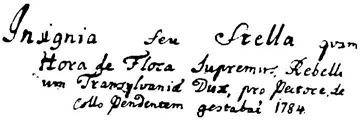 Insignia seu Stella quam
Hora de Flora Supremus Rebelli
um Transylvaniæ Dux, pro Pectore, de
Collo Pendentem gestabat 1784.